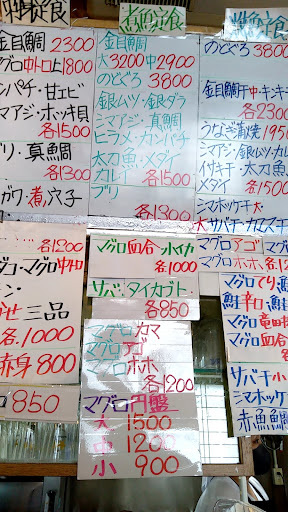 煮魚定食
金目鯛
大3200 中2900
のどぐろ 3800
銀ムツ・銀ダラ
シマアジ・真鯛
ヒラメ・カンパチ
太刀魚・メダイ
カレイ 各1500
ブリ
各1300
マグロ血合・小イカ
各1000
サバ・タイカブト・
各850
マグロカマ
マグロアゴ
マグロホホ
各1200
マグロ円盤
大 1500
中 1200
小 900
金目鯛 2300
マグロ中トロ 1800
ンパチ・甘エビ
マアジ・ホッキ貝
各1500
ブリ・真鯛
各1300
煮穴子
各1200
マグロ中
三品
各1000
赤身 800
850
のどぐろ 3800
金目鯛中
各2300
うなぎ蒲焼 1950
シマアジ・銀ムツ・カレ
イサキ・太刀魚
メダイ 各150
シマホッケ大
大サバ
マグロアゴ
マグロホホ 各12
マグロてり
鮭辛口
マグロ竜田
マグロ血合
サバ干小
シマホッケ
赤魚鯛